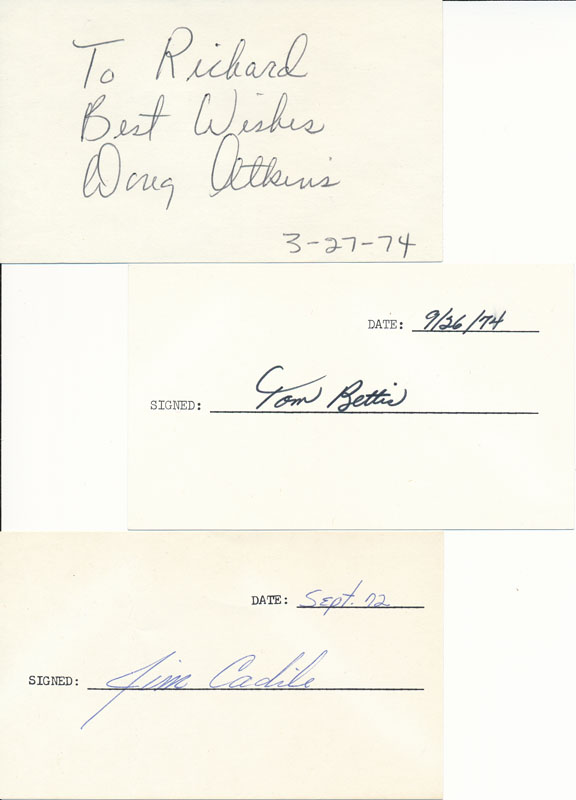 To Richard
Best Wishes
Doug Atkins
3-27-74
DATE: 9/26/74
SIGNED: Tom Bettis
DATE: Sept. 72
SIGNED: Jim Cadile